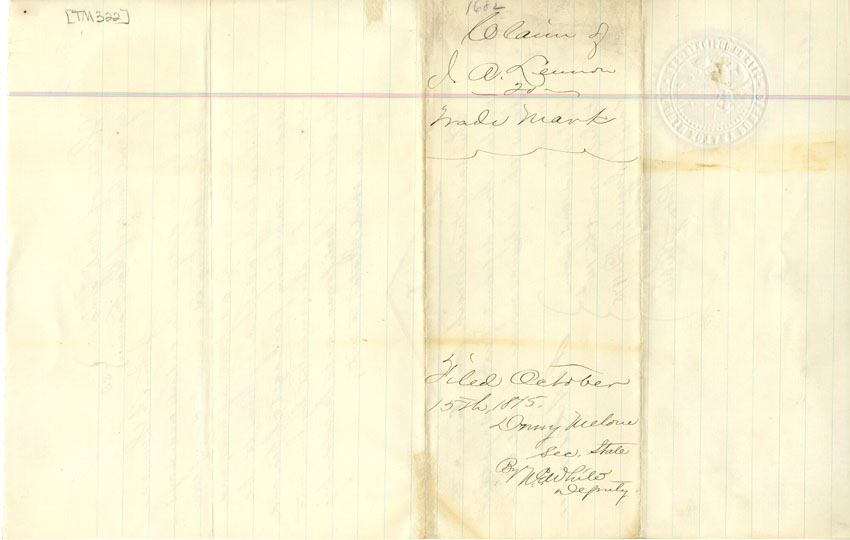 [TM322]
1682
Claim of
J. A. Lennon
to
Trade Mark
Filed October
15th, 1875.
Drury Melone
Sec. State
By W.E. White
Deputy